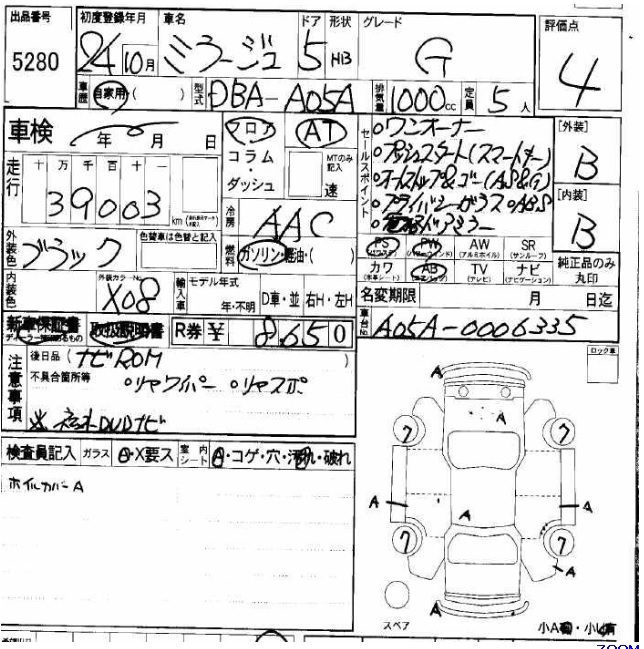 出品番号 初度登録年月 車名 ドア 形状 グレード 評価点
5280 24 10月 ミラージュ 5 HB G 4
車歴 自家用・( ) 型式 DBA-A05A 排気量 1000cc 定員 5人
車検 年 月 日 フロア AT セールスポイント ○ワンオーナー [外装]
コラム・ダッシュ MTのみ記入 速 ○プッシュスタート(スマートキー) B
走行 十 万 千 百 十 一 ○オートストップ&ゴー(AS&G)
39003 km ○プライバシーガラス ○ABS [内装]
冷房 AAC ○電格ドアミラー B
外装色 ブラック 色替車は色替と記入 燃料 ガソリン・軽油・( ) PS PW AW SR
(パワステ) (パワーウインド) (アルミホイル) (サンルーフ)
カワ AB TV ナビ 純正品のみ丸印
(本革シート) (エアバッグ) (テレビ) (ナビゲーション)
内装色 外装カラーNo. X08 輸入車 モデル年式 年・不明 D車・並 右H・左H 名変期限 月 日迄
新車保証書 取扱説明書 R券 ¥ 8,650 車台No. A05A-0006335
ディーラー捺印のあるもの
注意事項 後日品 (ナビROM ) ロック車
不具合箇所等 ○リヤワイパー ○リヤスポ
※ 社外DVDナビ
検査員記入 ガラス A・X要ス 室内シート A・コゲ・穴・汚れ・破れ
ホイルカバーA
A
A
7 7
A A A
7 7
A
A
スペア 小A有・小U有
ZOOM